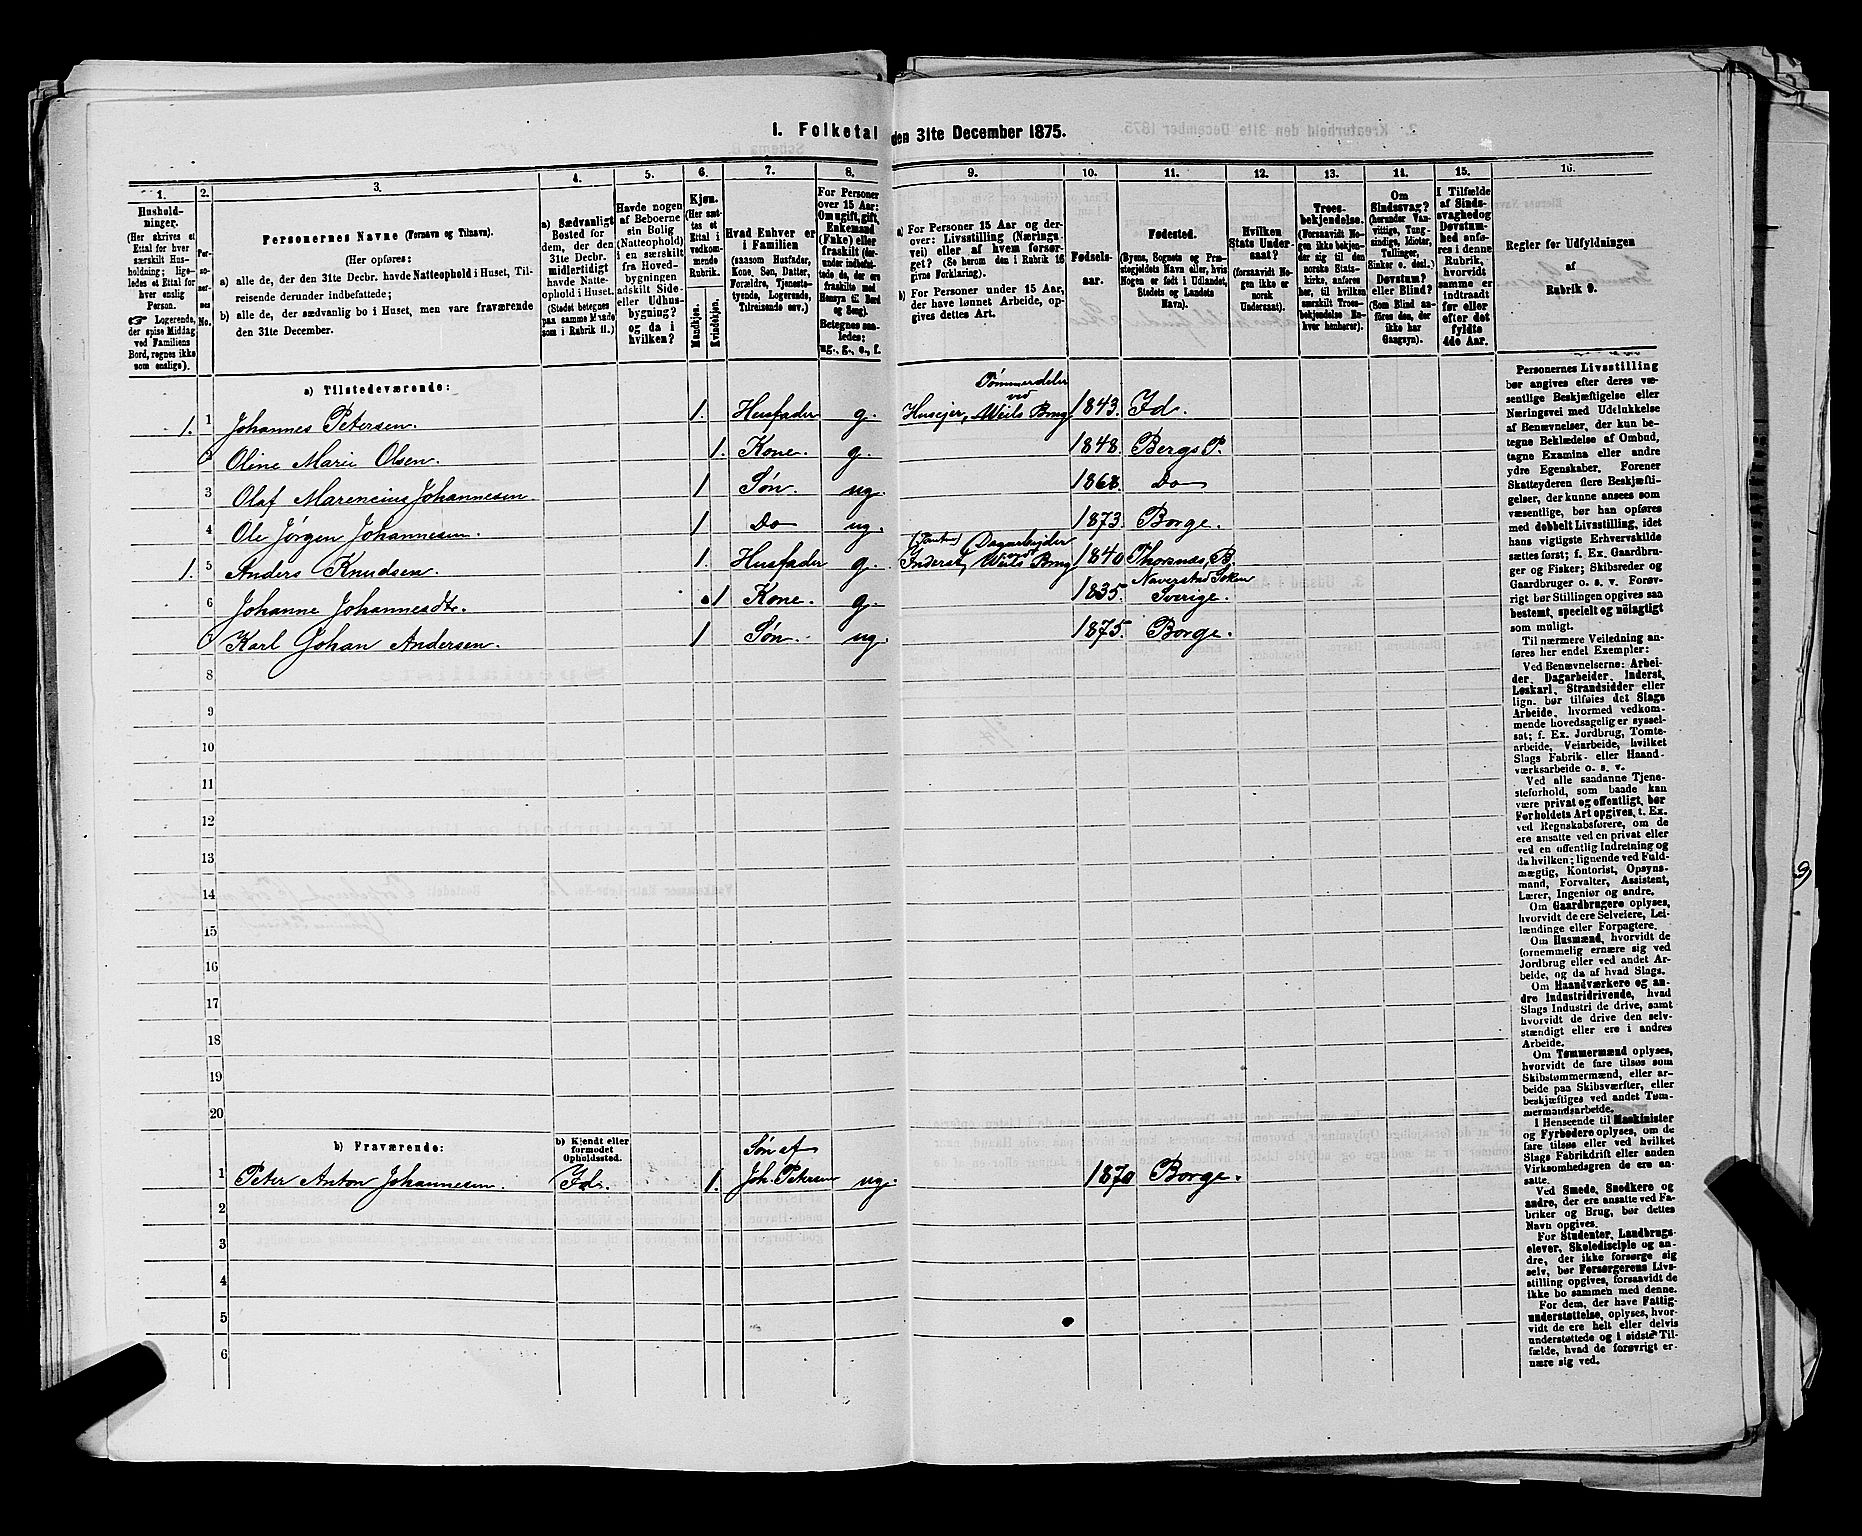 I. Folketal den 31te December 1875.
1. 2. 3. 4. 5. 6. 7. 8. 9. 10. 11. 12. 13. 14. 15. 16.
Hushold-
ninger.
(Her skrives et
Ettal for hver
særskilt Hus-
holdning; lige-
ledes et Ettal for
hver enslig
Person.
☞ Logerende,
der spise Middag
ved Familiens
Bord, regnes ikke
som enslige).
Per-
so-
ner-
nes
No.
Personernes Navne (Fornavn og Tilnavn).
(Her opføres:
a) alle de, der den 31te Decbr. havde Natteophold i Huset, Til-
reisende derunder indbefattede;
b) alle de, der sædvanlig bo i Huset, men vare fraværende
den 31te December.
a) Sædvanligt
Bosted for
dem, der den
31te Decbr.
midlertidigt
havde Natte-
ophold i Huset.
(Stedet betegnes
paa samme Maade
som i Rubrik 11.)
Havde nogen
af Beboerne
sin Bolig
(Natteophold)
i en særskilt
fra Hoved-
bygningen
adskilt Side-
eller Udhus-
bygning?
og da i
hvilken?
Kjøn.
(Her sæt-
tes et
Ettal i
vedkom-
mende
Rubrik.
Mandkjøn.
Kvindekjøn.
Hvad Enhver er
i Familien
(saasom Husfader,
Kone, Søn, Datter,
Forældre, Tjeneste-
tyende, Logerende,
Tilreisende osv.)
For Personer
over 15 Aar:
Om ugift, gift,
Enkemand
(Enke) eller
fraskilt (der-
under indbefat-
tede de, der ere
fraskilte med
Hensyn til Bord
og Seng).
Betegnes saa-
ledes:
ug., g., e., f.
a) For Personer 15 Aar og der-
over: Livsstilling (Nærings-
vei) eller af hvem forsør-
get? (Se herom den i Rubrik 16
givne Forklaring).
b) For Personer under 15 Aar,
der have lønnet Arbeide, op-
gives dettes Art.
Fødsels-
aar.
Fødested.
(Byens, Sognets og Præ-
stegjeldets Navn eller, hvis
Nogen er født i Udlandet,
Stedets og Landets
Navn).
Hvilken
Stats Under-
saat?
(forsaavidt No-
gen ikke er
norsk
Undersaat).
Troes-
bekjendelse.
(Forsaavidt No-
gen ikke bekjen-
der sig til den
norske Stats-
kirke, anføres
her, til hvilken
særskilt Troes-
bekjendelse En-
hver henhører).
Om
Sindssvag?
(herunder Van-
vittige, Tung-
sindige, Idioter,
Tullinger,
Sinker o. desl.)
Døvstum?
eller Blind?
(Som Blind an-
føres den, der
ikke har
Gangsyn).
I Tilfælde
af Sinds-
svaghed og
Døvstum-
hed anfø-
res i denne
Rubrik,
hvorvidt
samme er
indtraadt
før eller
efter det
fyldte
4de Aar.
Regler for Udfyldningen
af
Rubrik 9.
a) Tilstedeværende:
1. 1 Johannes Petersen. 1. Husfader g. Huseier, Tømmerdeler ved Weils Brug 1843. Id.
2 Oline Marie Olsen. 1. Kone. g. 1848. Bergs P.
3 Olaf Marencius Johannesen. 1 Søn. ug. 1868. Do
4 Ole Jørgen Johannesen. 1 Do ug. 1873. Borge.
1. 5 Anders Knudsen. 1. Husfader g. Inderst, Dagarbejder ved Weils Brug 1840 Thorsnæs, B.
6 Johanne Johannesdtr. 1 Kone. g. 1835. Naverstad Soken Sverige.
7 Karl Johan Andersen. 1 Søn. ug. 1875. Borge.
8
9
10
11
12
13
14
15
16
17
18
19
20
b) Fraværende:
b) Kjendt eller
formodet
Opholdssted.
1 Peter Anton Johannesen Id. 1. Søn af Joh. Petersen ug. 1870 Borge.
2
3
4
5
6
Personernes Livsstilling
bør angives efter deres væ-
sentlige Beskjæftigelse eller
Næringsvei med Udelukkelse
af Benævnelser, der kun be-
tegne Beklædelse af Ombud,
tagne Examina eller andre
ydre Egenskaber. Forener
Skatteyderen flere Beskjæfti-
gelser, der kunne ansees som
væsentlige, bør han opføres
med dobbelt Livsstilling, idet
hans vigtigste Erhvervskilde
sættes først; f. Ex. Gaardbru-
ger og Fisker; Skibsreder og
Gaardbruger o. s. v. Forøv-
rigt bør Stillingen opgives saa
bestemt, specielt og nøiagtigt
som muligt.
Til nærmere Veiledning an-
føres her endel Exempler:
Ved Benævnelserne: Arbei-
der, Dagarbeider, Inderst,
Løskarl, Strandsidder eller
lign. bør tilføies det Slags
Arbeide, hvormed vedkom-
mende hovedsagelig er syssel-
sat; f. Ex. Jordbrug, Tomte-
arbeide, Veiarbeide, hvilket
Slags Fabrik- eller Haand-
værksarbeide o. s. v.
Ved alle saadanne Tjene-
steforhold, som baade kan
være privat og offentligt, bør
Forholdets Art opgives, t. Ex.
ved Regnskabsførere, om de
ere ansatte ved en privat eller
ved en offentlig Indretning og
da hvilken; lignende ved Fuld-
mægtig, Kontorist, Opsyns-
mand, Forvalter, Assistent,
Lærer, Ingeniør og andre.
Om Gaardbrugere oplyses,
hvorvidt de ere Selveiere, Lei-
lændinge eller Forpagtere.
Om Husmænd, hvorvidt de
fornemmelig ernære sig ved
Jordbrug eller ved andet Ar-
beide, og da af hvad Slags.
Om Haandværkere og an-
dre Industridrivende, hvad
Slags Industri de drive, samt
hvorvidt de drive den selv-
stændigt eller ere i andres
Arbeide.
Om Tømmermænd oplyses,
hvorvidt de fare tilsøs som
Skibstømmermænd, eller ar-
beide paa Skibsværfter, eller
beskjæftiges ved andet Tøm-
mermandsarbeide.
I Henseende til Maskinister
og Fyrbødere oplyses, om de
fare tilsøs eller ved hvilket
Slags Fabrikdrift eller anden
Virksomhedsgren de ere an-
satte.
Ved Smede, Snedkere og
andre, der ere ansatte ved Fa-
briker og Brug, bør dettes
Navn opgives.
For Studenter, Landbrugs-
elever, Skoledisciple og an-
dre, der ikke forsørge sig
selv, bør Forsørgerens Livs-
stilling opgives, forsaavidt de
ikke bo sammen med denne.
For dem, der have Fattig-
understøttelse, oplyses, hvor-
vidt de ere helt eller delvis
understøttede og i sidste Til-
fælde, hvad de forøvrigt er-
nære sig ved.